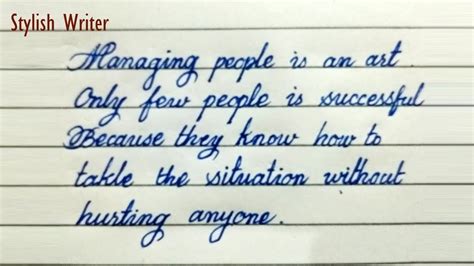 Stylish Writer
Managing people is an art.
Only few people is successful
Because they know how to
takle the situation without
hurting anyone.